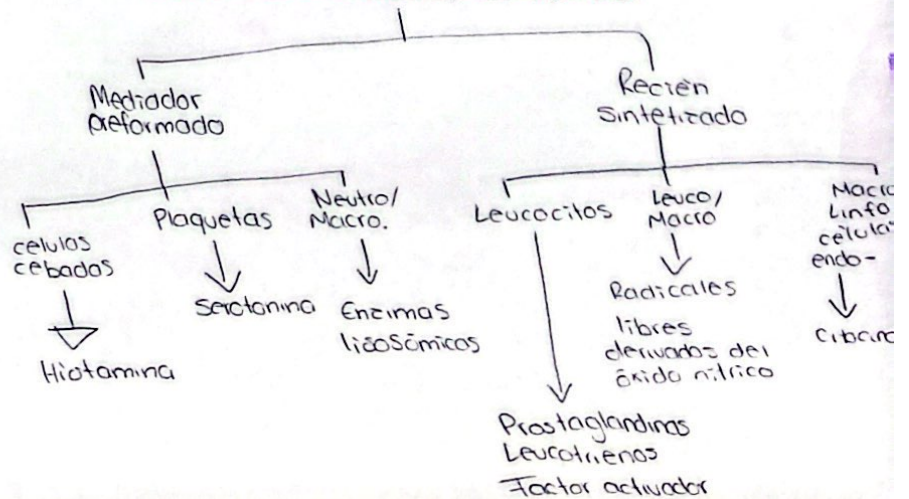 Mediador
preformado
Recién
Sintetizado
células
cebadas
Plaquetas
Neutro/
Macro.
Leucocitos
Leuco/
Macro
Macro
Linfo
células
endo-
Histamina
Serotonina
Enzimas
lisosómicas
Radicales
libres
derivados del
óxido nítrico
Prostaglandinas
Leucotrienos
Factor activador